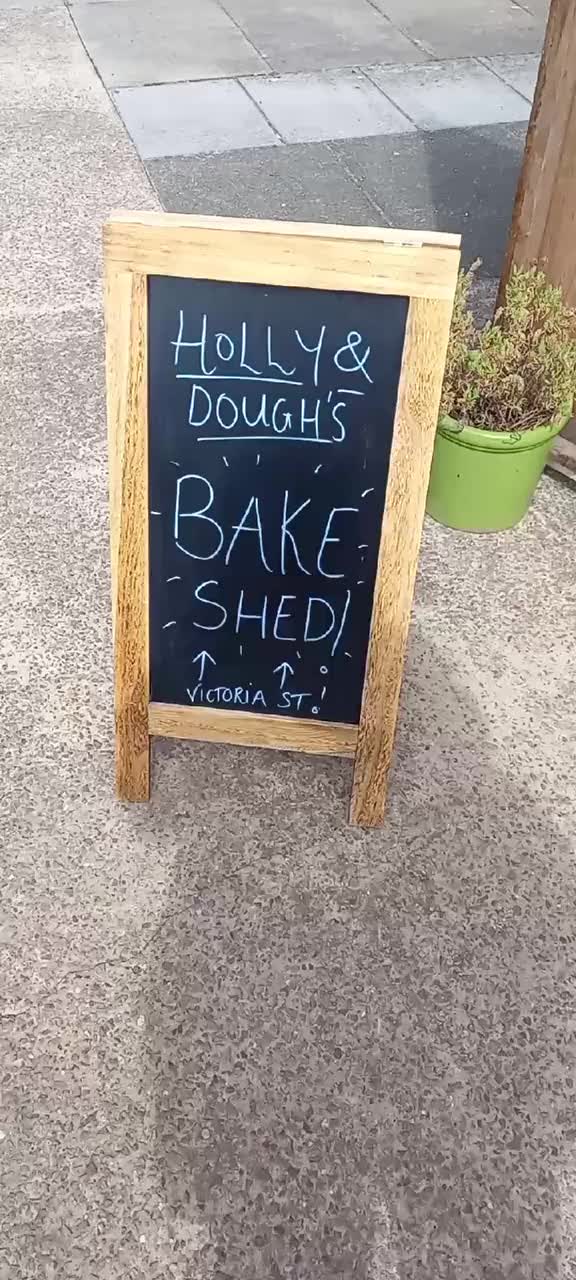 HOLLY &
DOUGH'S
BAKE
SHED!
↑ ↑
VICTORIA ST!